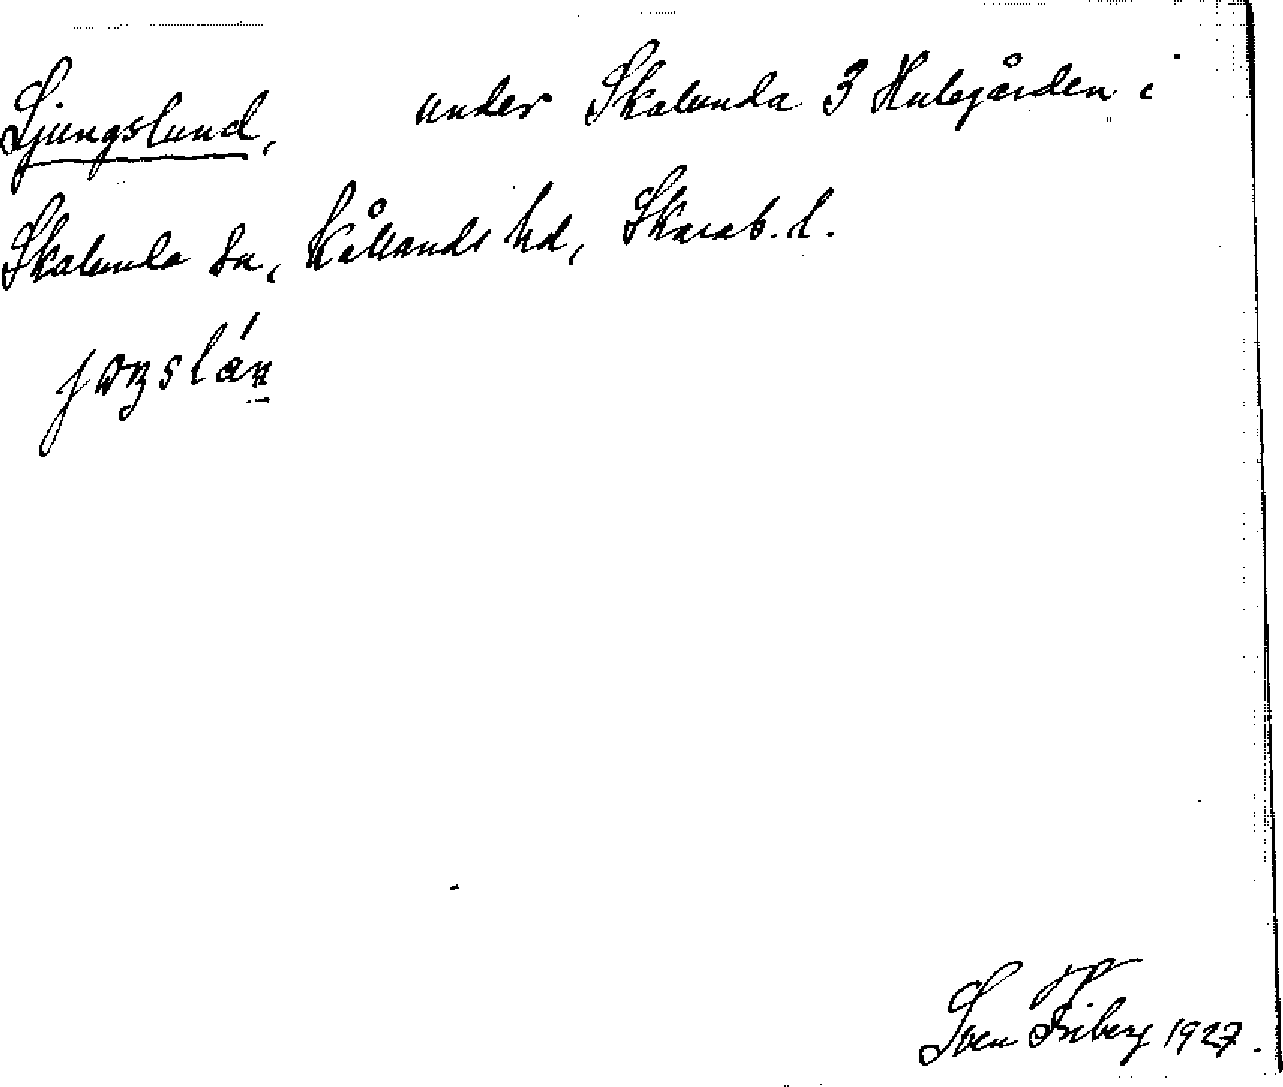 Ljungslund, under Skalunda 3 Hulegården i
Skalunda sn, Kållands hd, Skarab. l.
Sven Friberg 1927.